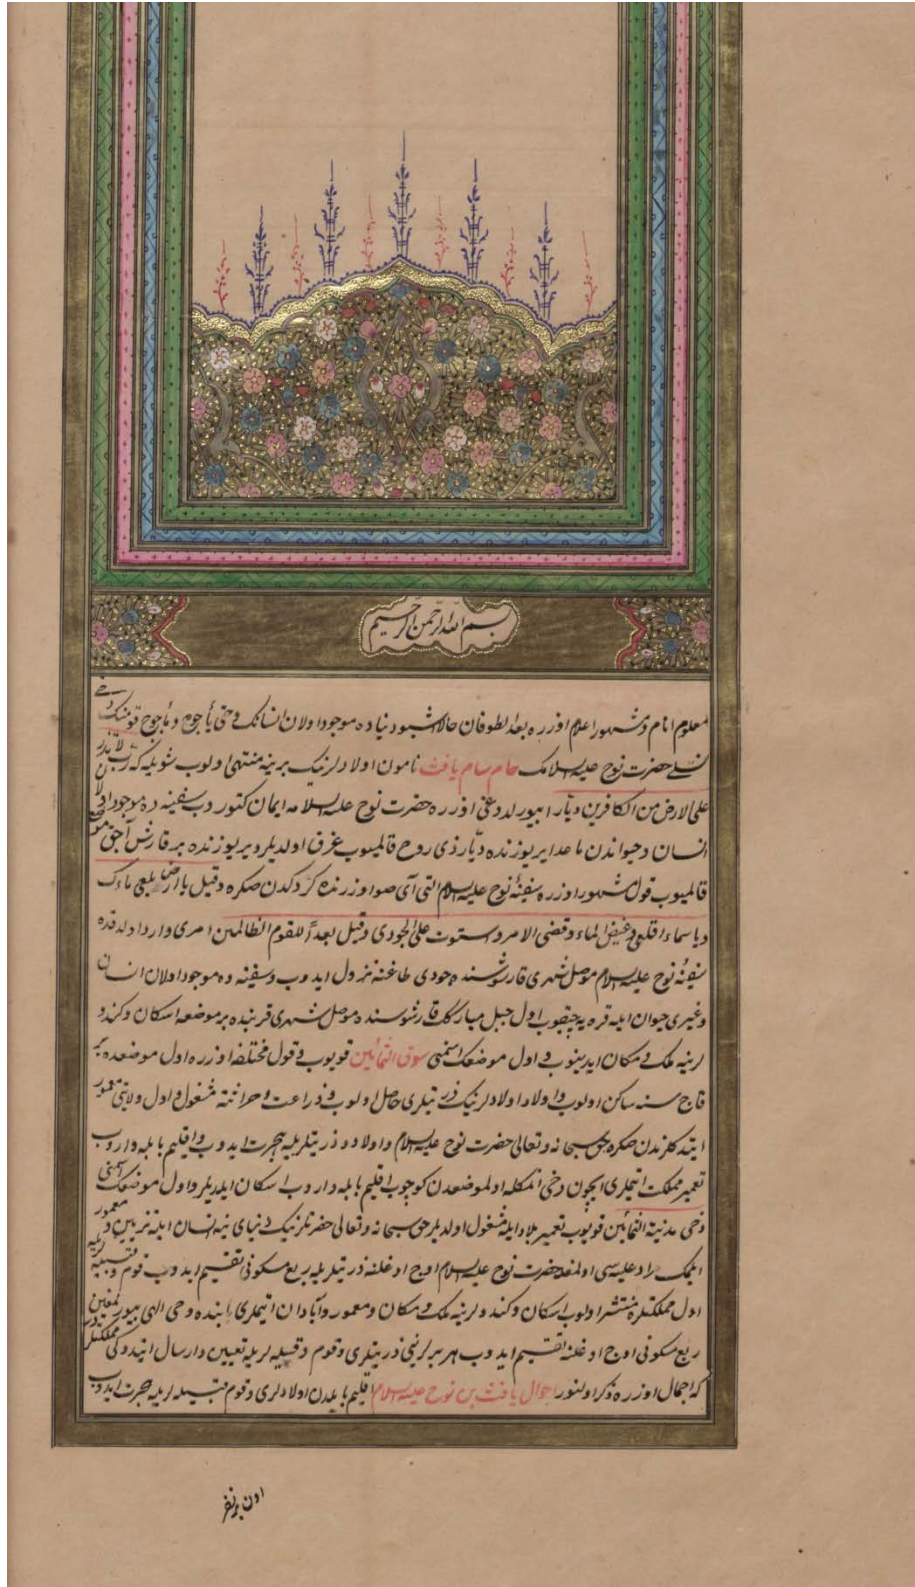 بسم الله الرحمن الرحیم
معلوم انام و مشهور اعلام اوزره بعد الطوفان حالا شبو دنیاده موجود اولان انسانك و حتی یأجوج و مأجوج قومنك دخی
نسلی حضرت نوح علیه السلامك حام سام یافث نامون اولادلرینك برینه منتهی اولوب شویله كه رب لا تذر
علی الارض من الكافرین دیارا بیورلدوغی اوزره حضرت نوح علیه السلامه ایمان كتوروب سفینه ده موجود اولان
انسان و حیواندن ماعدا یر یوزنده دیار ذی روح قالمیوب غرق اولدیلر و یر یوزنده بر قارش آچق موضع
قالمیوب قول مشهور اوزره سفینهٔ نوح علیه السلام التی آی صو اوزرنده كزدكدن صكره و قیل یا ارض ابلعی ماءك
و یا سماء اقلعی و غیض الماء و قضی الامر و استوت علی الجودی و قیل بعداً للقوم الظالمین امری وارد اولدقده
سفینهٔ نوح علیه السلام موصل شهری قارشوسنده جودی طاغنه نزول ایدوب و سفینه ده موجود اولان انسان
و غیری حیوان ایله قره یه چیقوب اول جبل مبارك قارشوسنده موصل شهری قربنده بر موضعه اسكان و كندو
لرینه ملك و مكان ایدینوب و اول موضعك اسمنی سوق الثمانین قویوب و قول مختلفه اوزره اول موضعده بر
قاچ سنه ساكن اولوب و اولاد اولادلرینك ذریتلری حاصل اولوب و زراعت و حراثته مشغول و اول ولایتی معمور
ایتدكلرندن صكره حق سبحانه و تعالی حضرت نوح علیه السلام و اولاد و ذریتلریله هجرت ایدوب و اقلیم بابله واروب
تعمیر مملكت ایتملری ایچون وحی اتمكله اولموضعدن كوچوب اقلیم بابله واروب اسكان ایلدیلر و اول موضعك اسمنی
دخی مدینة الثمانین قویوب تعمیر بلاد ایله مشغول اولدیلر حق سبحانه و تعالی حضرتلرینك دنیای ینه انسان ایله تزیین و معمور
ایتمك مراد علیه سی اولمغله حضرت نوح علیه السلام اوچ اوغلنه ذریتلریله ربع مسكونی تقسیم ایدوب قوم و قبیله لریله
اول مملكتلره منتشر اولوب اسكان و كندولرینه ملك و مكان و معمور و آبادان ایتملری بابنده وحی الهی بیورلمغین
ربع مسكونی اوچ اوغلنه تقسیم ایدوب هر برلرینی ذریتلری و قوم و قبیله لریله تعیین و ارسال ایتدوكی مملكتلر
كه اجمال اوزره ذكر اولنور احوال یافث بن نوح علیه السلام اقلیم بابلدن اولادلری و قوم قبیله لریله هجرت ایدوب
اون بر نفر